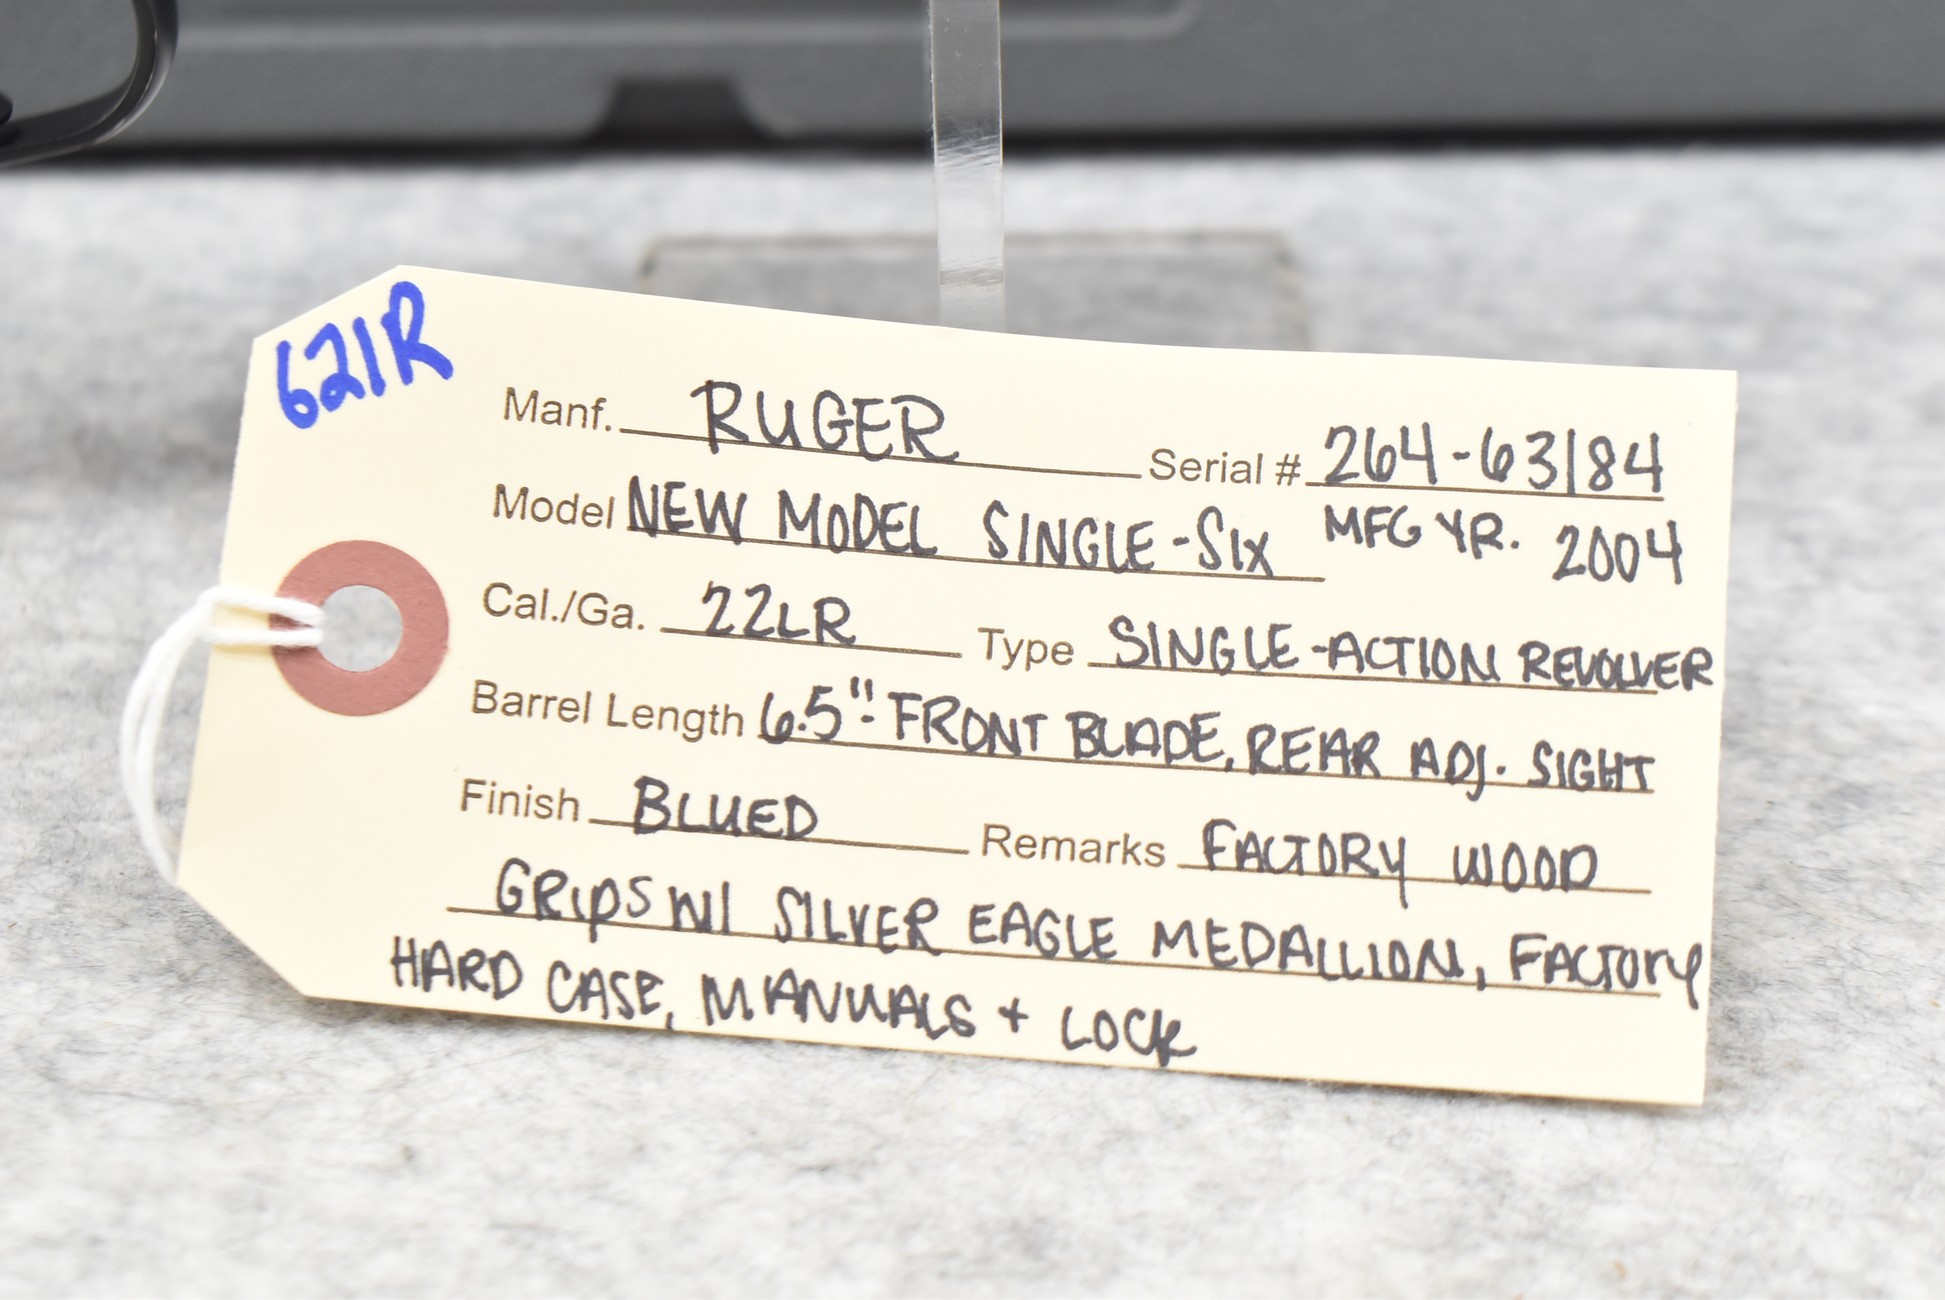 621R
Manf. RUGER Serial # 264-63184
Model NEW MODEL SINGLE-SIX MFG YR. 2004
Cal./Ga. 22LR Type SINGLE-ACTION REVOLVER
Barrel Length 6.5"- FRONT BLADE, REAR ADJ. SIGHT
Finish BLUED Remarks FACTORY WOOD
GRIPS W/ SILVER EAGLE MEDALLION, FACTORY
HARD CASE, MANUALS + LOCK